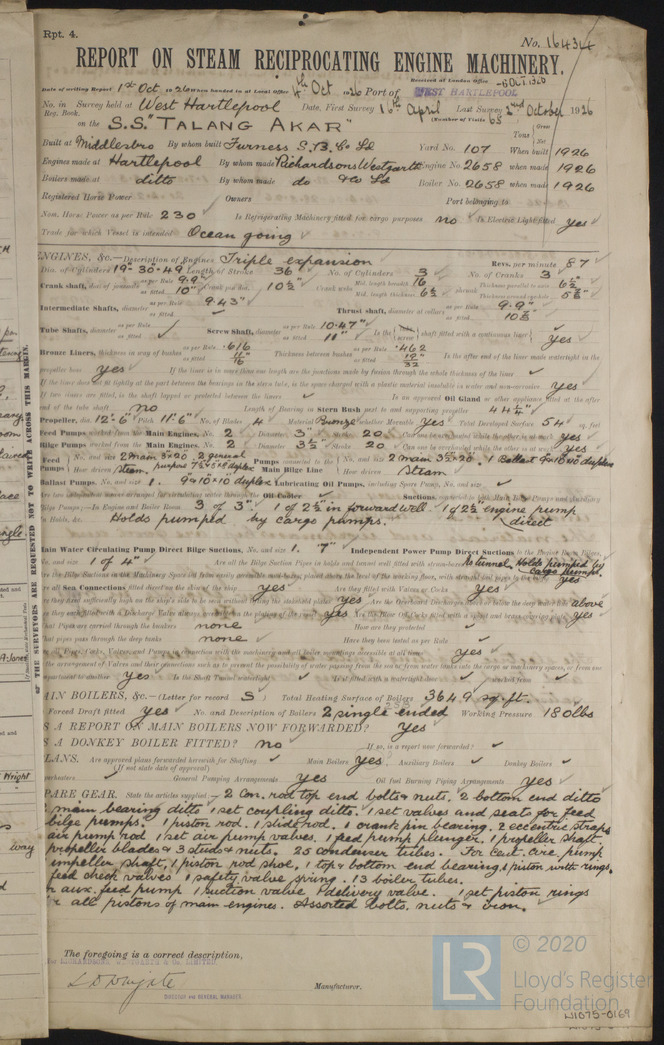 Rpt. 4.
No. 16434
REPORT ON STEAM RECIPROCATING ENGINE MACHINERY.
Received at London Office
Date of writing Report 1st Oct 1926 When handed in at Local Office 4th Oct. 1926 Port of WEST HARTLEPOOL
No. in Survey held at West Hartlepool Date, First Survey 16th April Last Survey 2nd October 1926
Reg. Book. (Number of Visits 65
on the S.S. "TALANG AKAR" Tons Gross Net
Built at Middlesbro By whom built Furness S.B. Co Ld Yard No. 107 When built 1926
Engines made at Hartlepool By whom made Richardsons Westgarth Engine No. 2658 when made 1926
Boilers made at ditto By whom made do & Co Ld Boiler No. 2658 when made 1926
Registered Horse Power Owners Port belonging to
Nom. Horse Power as per Rule 230 Is Refrigerating Machinery fitted for cargo purposes no Is Electric Light fitted yes
Trade for which Vessel is intended Ocean going
ENGINES, &c.—Description of Engines Triple expansion Revs. per minute 87
Dia. of Cylinders 19"-30-49 Length of Stroke 36" No. of Cylinders 3 No. of Cranks 3
Crank shaft, dia. of journals as per Rule 9.9" as fitted 10" Crank pin dia. 10½" Crank webs Mid. length breadth 16 Mid. length thickness 6½
Intermediate Shafts, diameter as per Rule 9.43" as fitted Thrust shaft, diameter at collars as per Rule 9.9" as fitted
Tube Shafts, diameter as per Rule as fitted Screw Shaft, diameter as per Rule 10.47" as fitted 11" Is the shaft fitted with a continuous liner yes
Bronze Liners, thickness in way of bushes as per Rule .616 as fitted 11/16 Thickness between bushes as per Rule .462 as fitted 19/32 Is the after end of the liner made watertight in the
propeller boss yes If the liner is in more than one length are the joints made by fusion through the whole thickness of the liner
If the liner does not fit tightly at the part between the bearings in the stern tube, is the space charged with a plastic material insoluble in water and non-corrosive yes
If two liners are fitted, is the shaft lapped or protected between the liners Is an approved Oil Gland or other appliance fitted at the after
end of the tube shaft no Length of Bearing in Stern Bush next to and supporting propeller 44½"
Propeller, dia. 12'-6" Pitch 11'6" No. of Blades 4 Material Bronze whether Moveable yes Total Developed Surface 54 sq. feet
Feed Pumps worked from the Main Engines, No. 2 Diameter 3" Stroke 20 Can one be overhauled while the other is at work yes
Bilge Pumps worked from the Main Engines, No. 2 Diameter 3½ Stroke 20 Can one be overhauled while the other is at work yes
Feed Pumps No. and size 2 main 3×20 2 general purpose 7½×5×6 duplex How driven Steam Pumps connected to the Main Bilge Line No. and size 2 main 3½×20" 1 Ballast 9×10×10 duplex How driven Steam
Ballast Pumps, No. and size 1. 9×10×10 duplex Lubricating Oil Pumps, including Spare Pump, No. and size
Are two independent means arranged for circulating water through the Oil Cooler Suctions, connected to both Main Bilge Pumps and Auxiliary
Bilge Pumps:—In Engine and Boiler Room 3 of 3" 1 of 2½ in forward well 1 of 2½ engine pump
In Holds, &c. Holds pumped by cargo pumps. direct
Main Water Circulating Pump Direct Bilge Suctions, No. and size 1. 7" Independent Power Pump Direct Suctions to the Engine Room Bilges,
No. and size 1 of 4" Are all the Bilge Suction Pipes in holds and tunnel well fitted with strum-boxes No tunnel. Holds pumped by cargo pumps.
yes
Are all Sea Connections fitted direct on the skin of the ship yes Are they fitted with Valves or Cocks yes
yes Are the Overboard Discharges above or below the deep water line above
yes yes
What Pipes are carried through the bunkers none How are they protected
What pipes pass through the deep tanks none Have they been tested as per Rule
Are all Pipes, Cocks, Valves, and Pumps in connection with the machinery and all boiler mountings accessible at all times yes
Is the arrangement of Valves and their connections such as to prevent the possibility of water passing from the sea or from water tanks into the cargo or machinery spaces, or from one
compartment to another yes Is the Shaft Tunnel watertight Is it fitted with a watertight door worked from
MAIN BOILERS, &c.—(Letter for record S) Total Heating Surface of Boilers 3649 sq.ft.
Is Forced Draft fitted yes No. and Description of Boilers 2 single ended Working Pressure 180 lbs
IS A REPORT ON MAIN BOILERS NOW FORWARDED? yes
IS A DONKEY BOILER FITTED? no If so, is a report now forwarded?
PLANS. Are approved plans forwarded herewith for Shafting Main Boilers yes Auxiliary Boilers Donkey Boilers
(If not state date of approval)
Superheaters General Pumping Arrangements yes Oil fuel Burning Piping Arrangements yes
SPARE GEAR. State the articles supplied:— 2 con. rod top end bolts & nuts. 2 bottom end ditto
2 main bearing ditto 1 set coupling ditto. 1 set valves and seats for feed
& bilge pumps. 1 piston rod. 1 slide rod. 1 crank pin bearing. 2 eccentric straps
air pump rod 1 set air pump valves. 1 feed pump plunger. 1 propeller shaft.
propeller blades & 3 studs & nuts. 25 condenser tubes. For cent. circ. pump
impeller shaft, 1 piston rod shoe, 1 top & bottom end bearing, 1 piston with rings,
feed check valves 1 safety valve spring. 13 boiler tubes.
aux. feed pump 1 suction valve 1 delivery valve. 1 set piston rings
for all pistons of main engines. Assorted bolts, nuts & iron.
The foregoing is a correct description,
Manufacturer.
DIRECTOR and GENERAL MANAGER.
THE SURVEYORS ARE REQUESTED NOT TO WRITE ACROSS THIS MARGIN.
LR © 2020
Lloyd's Register
Foundation
W1075-0169